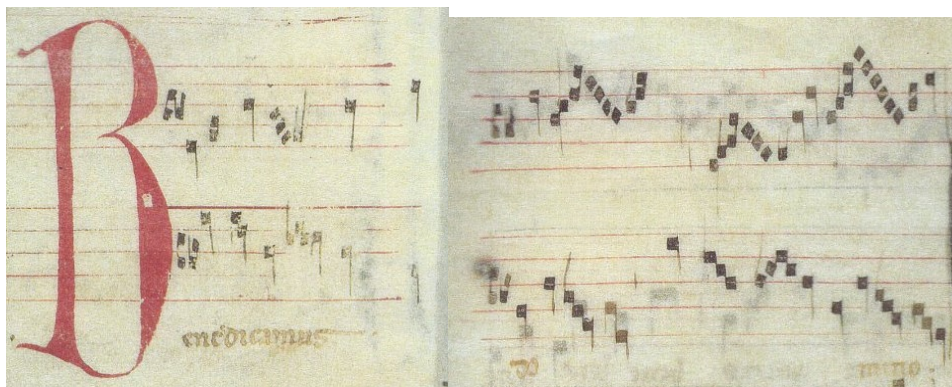 Benedicamus
do mino